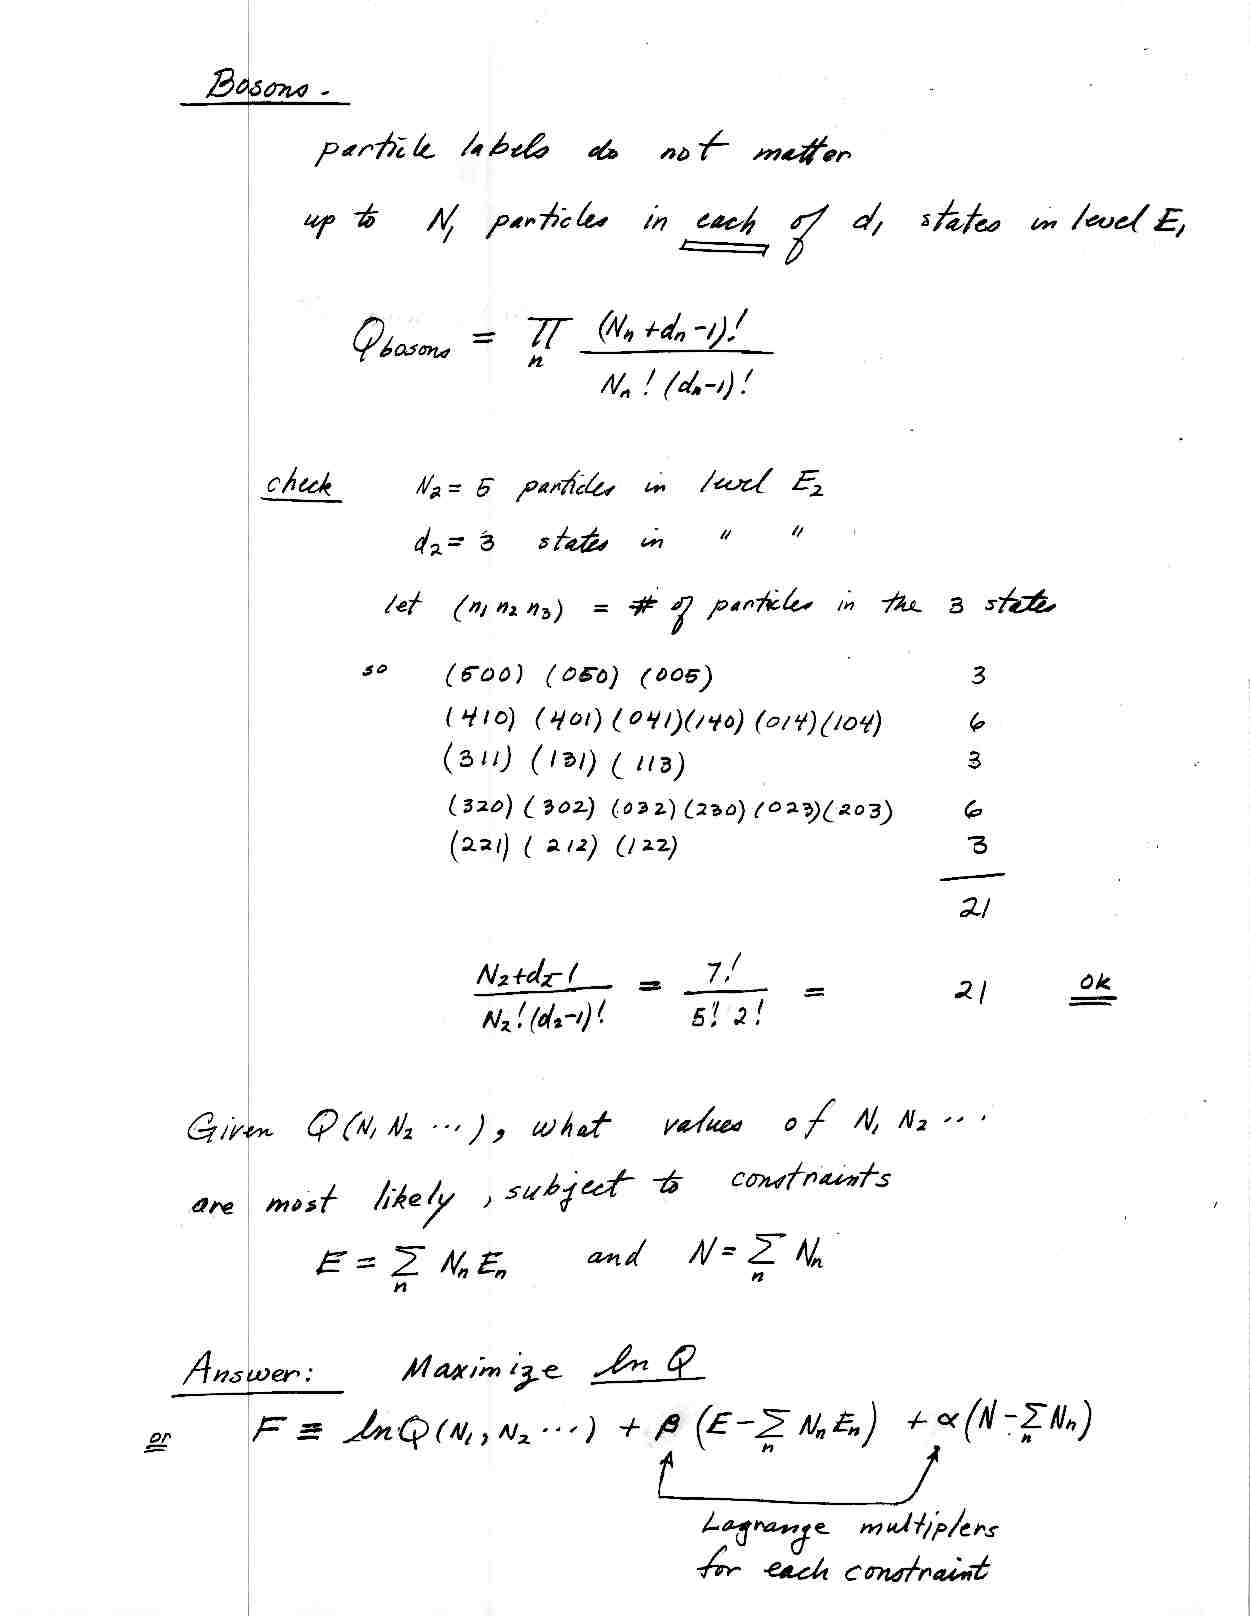 Bosons -
particle labels do not matter
up to N₁ particles in each of d₁ states in level E₁
Q_bosons = Π_n (N_n + d_n - 1)! / N_n! (d_n - 1)!
check N₂ = 5 particles in level E₂
d₂ = 3 states in " "
let (n₁ n₂ n₃) = # of particles in the 3 states
so (500) (050) (005) 3
(410) (401) (041) (140) (014) (104) 6
(311) (131) (113) 3
(320) (302) (032) (230) (023) (203) 6
(221) (212) (122) 3
21
N₂+d₂-1 / N₂! (d₂-1)! = 7! / 5! 2! = 21 ok
Given Q(N₁ N₂ ...), what values of N₁ N₂ ...
are most likely, subject to constraints
E = Σ_n N_n E_n and N = Σ_n N_n
Answer: Maximize ln Q
or F ≡ ln Q(N₁, N₂ ...) + β (E - Σ_n N_n E_n) + α (N - Σ_n N_n)
Lagrange multiplers
for each constraint